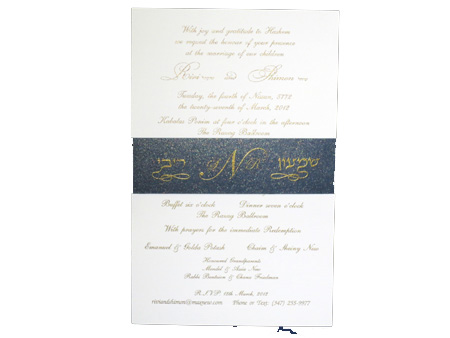 With joy and gratitude to Hashem
we request the honour of your presence
at the marriage of our children
Rivi and Shimon
Tuesday, the fourth of Nissan, 5772
the twenty seventh of March, 2012
Kabolas Ponim at four o'clock in the afternoon
The Razag Ballroom
ריבי N שמעון
Buffet six o'clock Dinner seven o'clock
The Razag Ballroom
With prayers for the immediate Redemption
Emanuel & Golda Chaim & New
Honored Grandparents
Mendel & New
Rabbi & Friedman
R.S.V.P. March, 2012
Phone or Text: (347) 255-9977